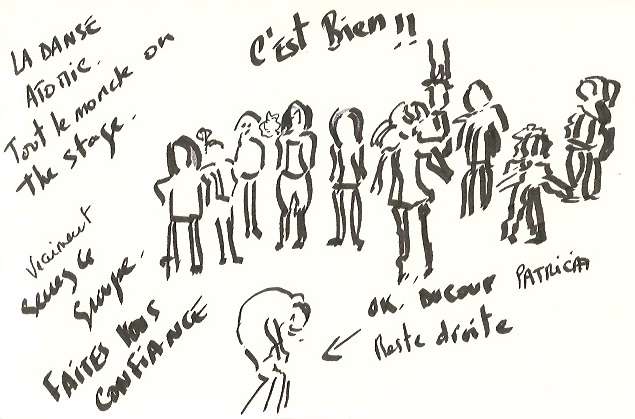 LA DANSE
ATOMIC.
Tout le monde on
the stage.
C'EST BIEN !!
Vraiment
Serrez le
Groupe.
FAITES VOUS
CONFIANCE
OK. DUCOUP PATRICIA
Reste droite